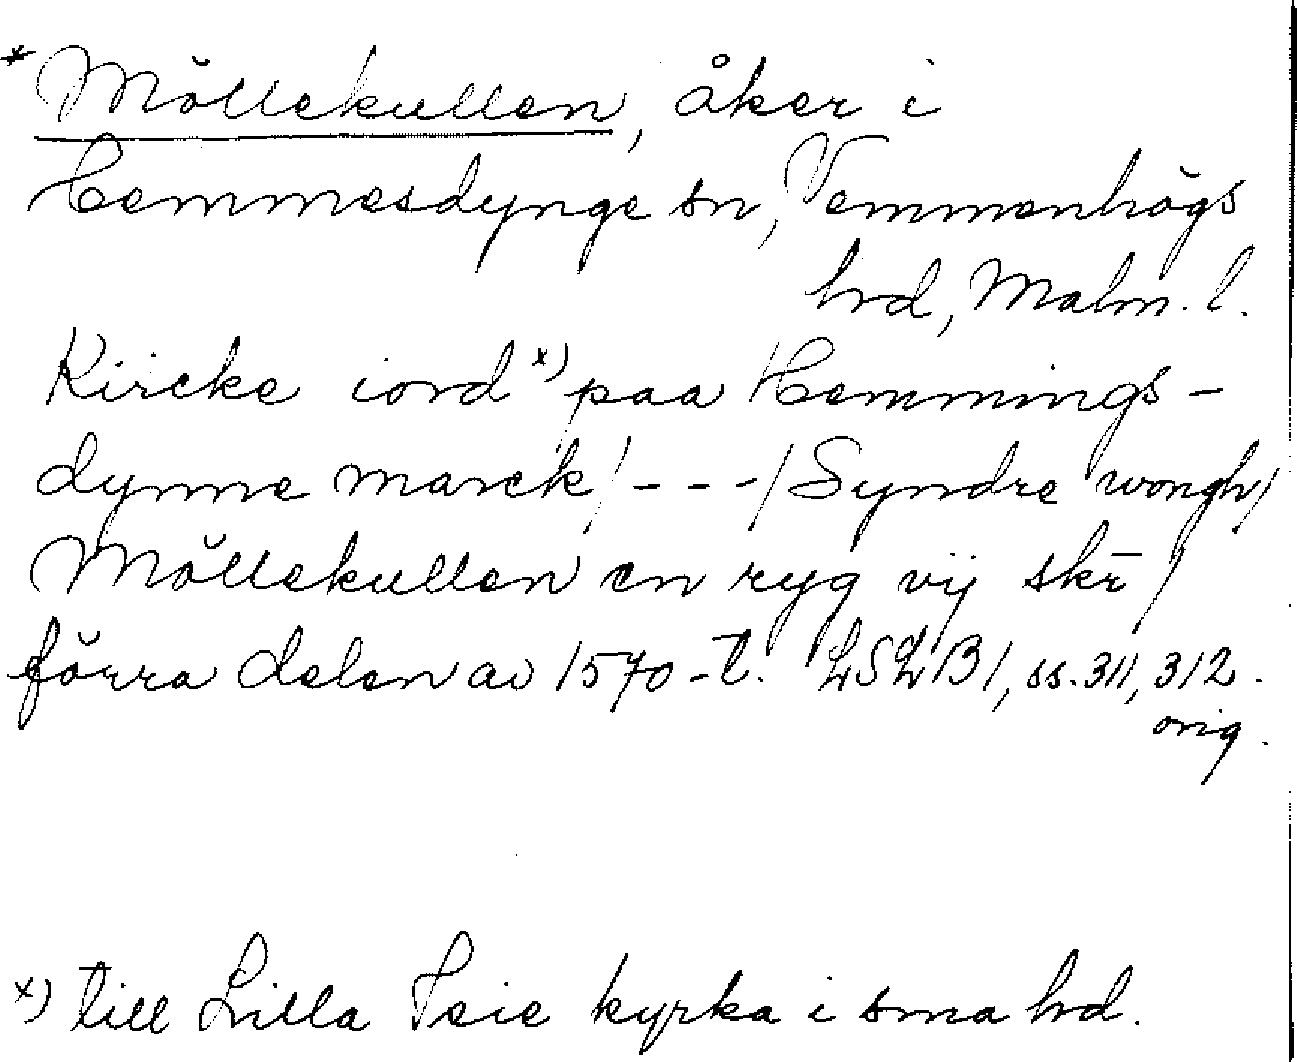 * Möllekullen, åker i
Hemmesdynge sn, Vemmenhögs
hrd, Malm. l.
Kircke iord x) paa Hemmings-
dynne marck/---/Syndre wongh/
Möllekullen en ryg vij skr/
förra delen av 1570-t. LSLB1, ss. 311, 312.
orig.
x) till Lilla Isie kyrka i sma hrd.